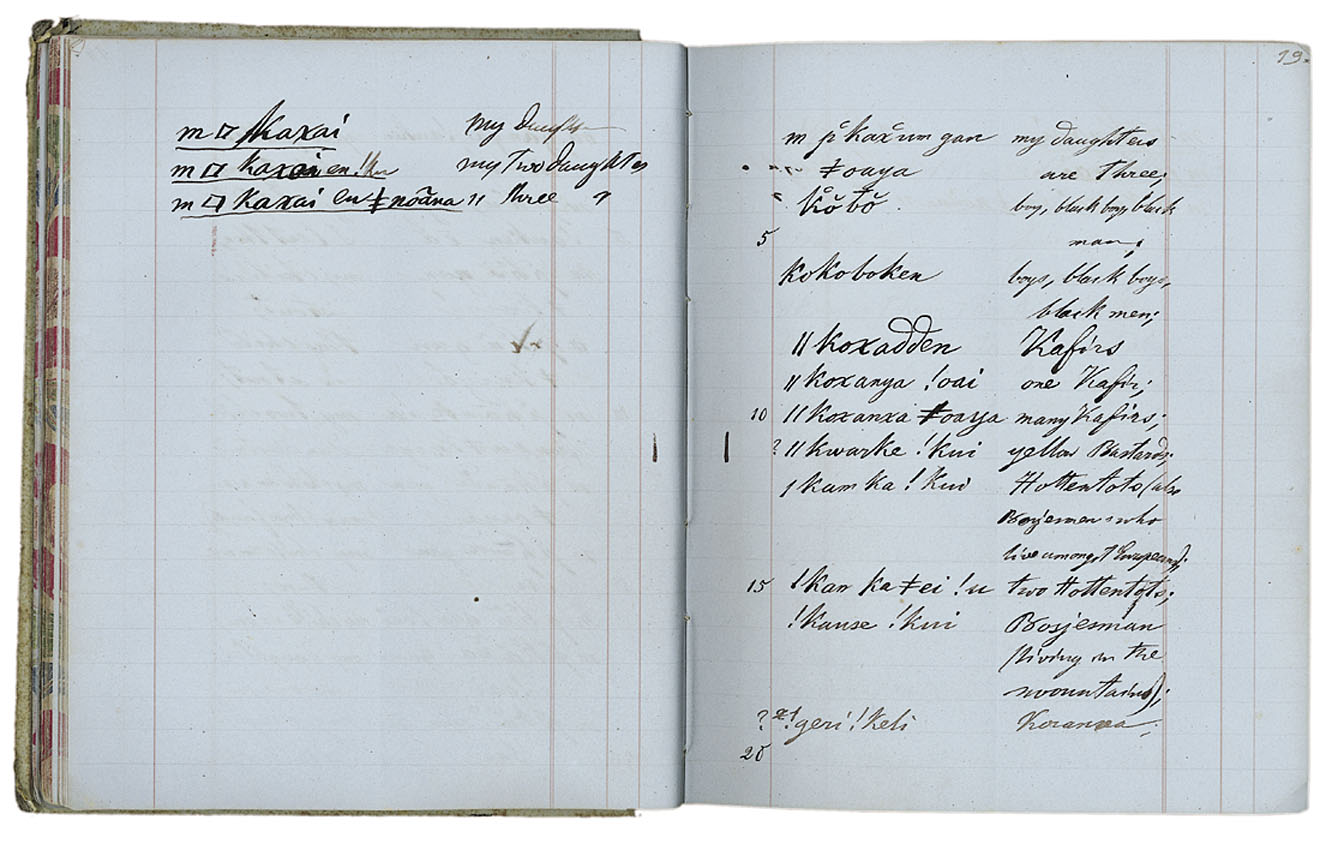 m ▱ kaxai my daughter
m ▱ kaxai en !ku my two daughters
m ▱ kaxai en ǂ nōāna " three "
19.
m kaxum gan my daughters
ǂ oaya are three;
kŏbŏ boy, black boy, black
5
man;
Kokoboken boys, black boys,
black men;
ǁ koxadden Kafirs
ǁ koxanya !oai one Kafir;
10 ǁ koxanxa ǂoaya many Kafirs;
? ǁ kwarke !kui yellow Bastards;
ǀ kam ka ! kui Hottentots (also
Bosjesmans who
live amongst Europeans);
15 !kan ka ǂ ei !u two Hottentots;
!kause !kui Bosjesman
(living in the
mountains);
? !geri !keli Koranna;
20